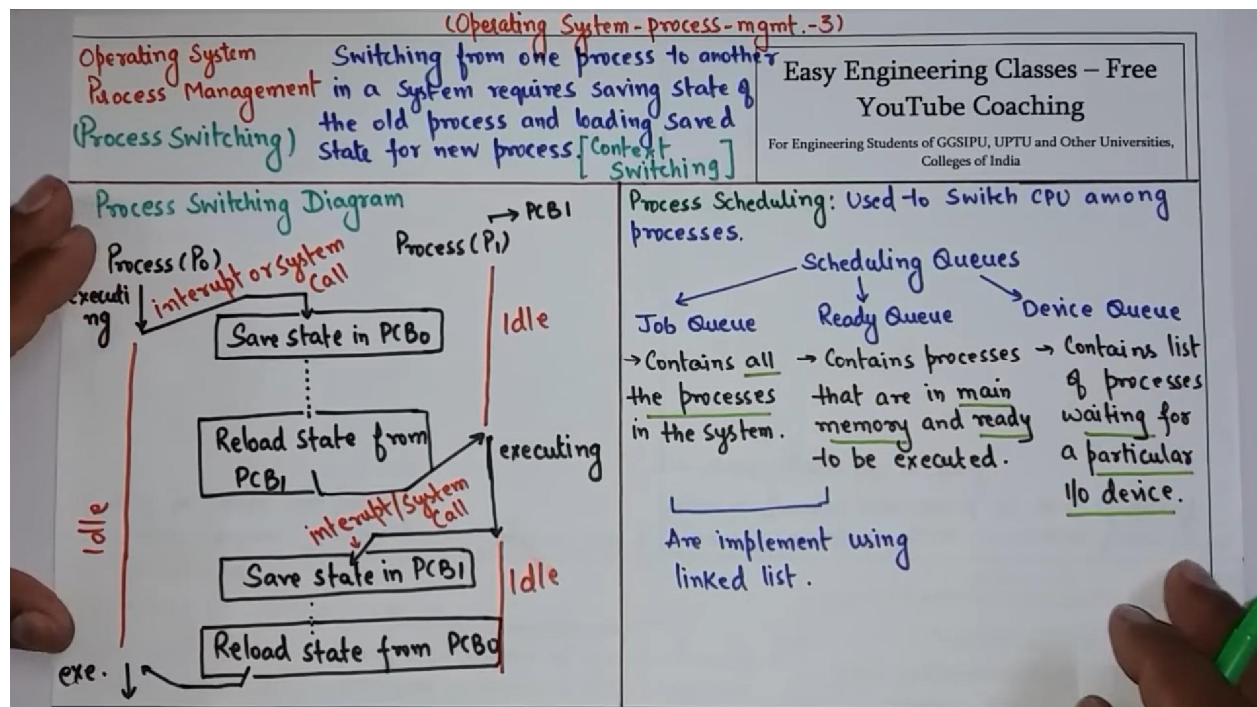 (Operating System-process-mgmt.-3)
Operating System
Process Management
(Process Switching)
Switching from one process to another
in a system requires saving state of
the old process and loading saved
state for new process. [Context
Switching]
Easy Engineering Classes – Free
YouTube Coaching
For Engineering Students of GGSIPU, UPTU and Other Universities,
Colleges of India
Process Switching Diagram
→ PCB1
Process (P0)
Process (P1)
executi
ng
interupt or system
Call
Idle
Save state in PCB0
Reload state from
PCB1
executing
interupt/system
Call
Idle
Save state in PCB1
Idle
Reload state from PCB0
exe.
Process Scheduling: Used to Switch CPU among
processes.
Scheduling Queues
Job Queue
→ Contains all
the processes
in the system.
Ready Queue
→ Contains processes
that are in main
memory and ready
to be executed.
Device Queue
→ Contains list
of processes
waiting for
a particular
I/o device.
Are implement using
linked list.